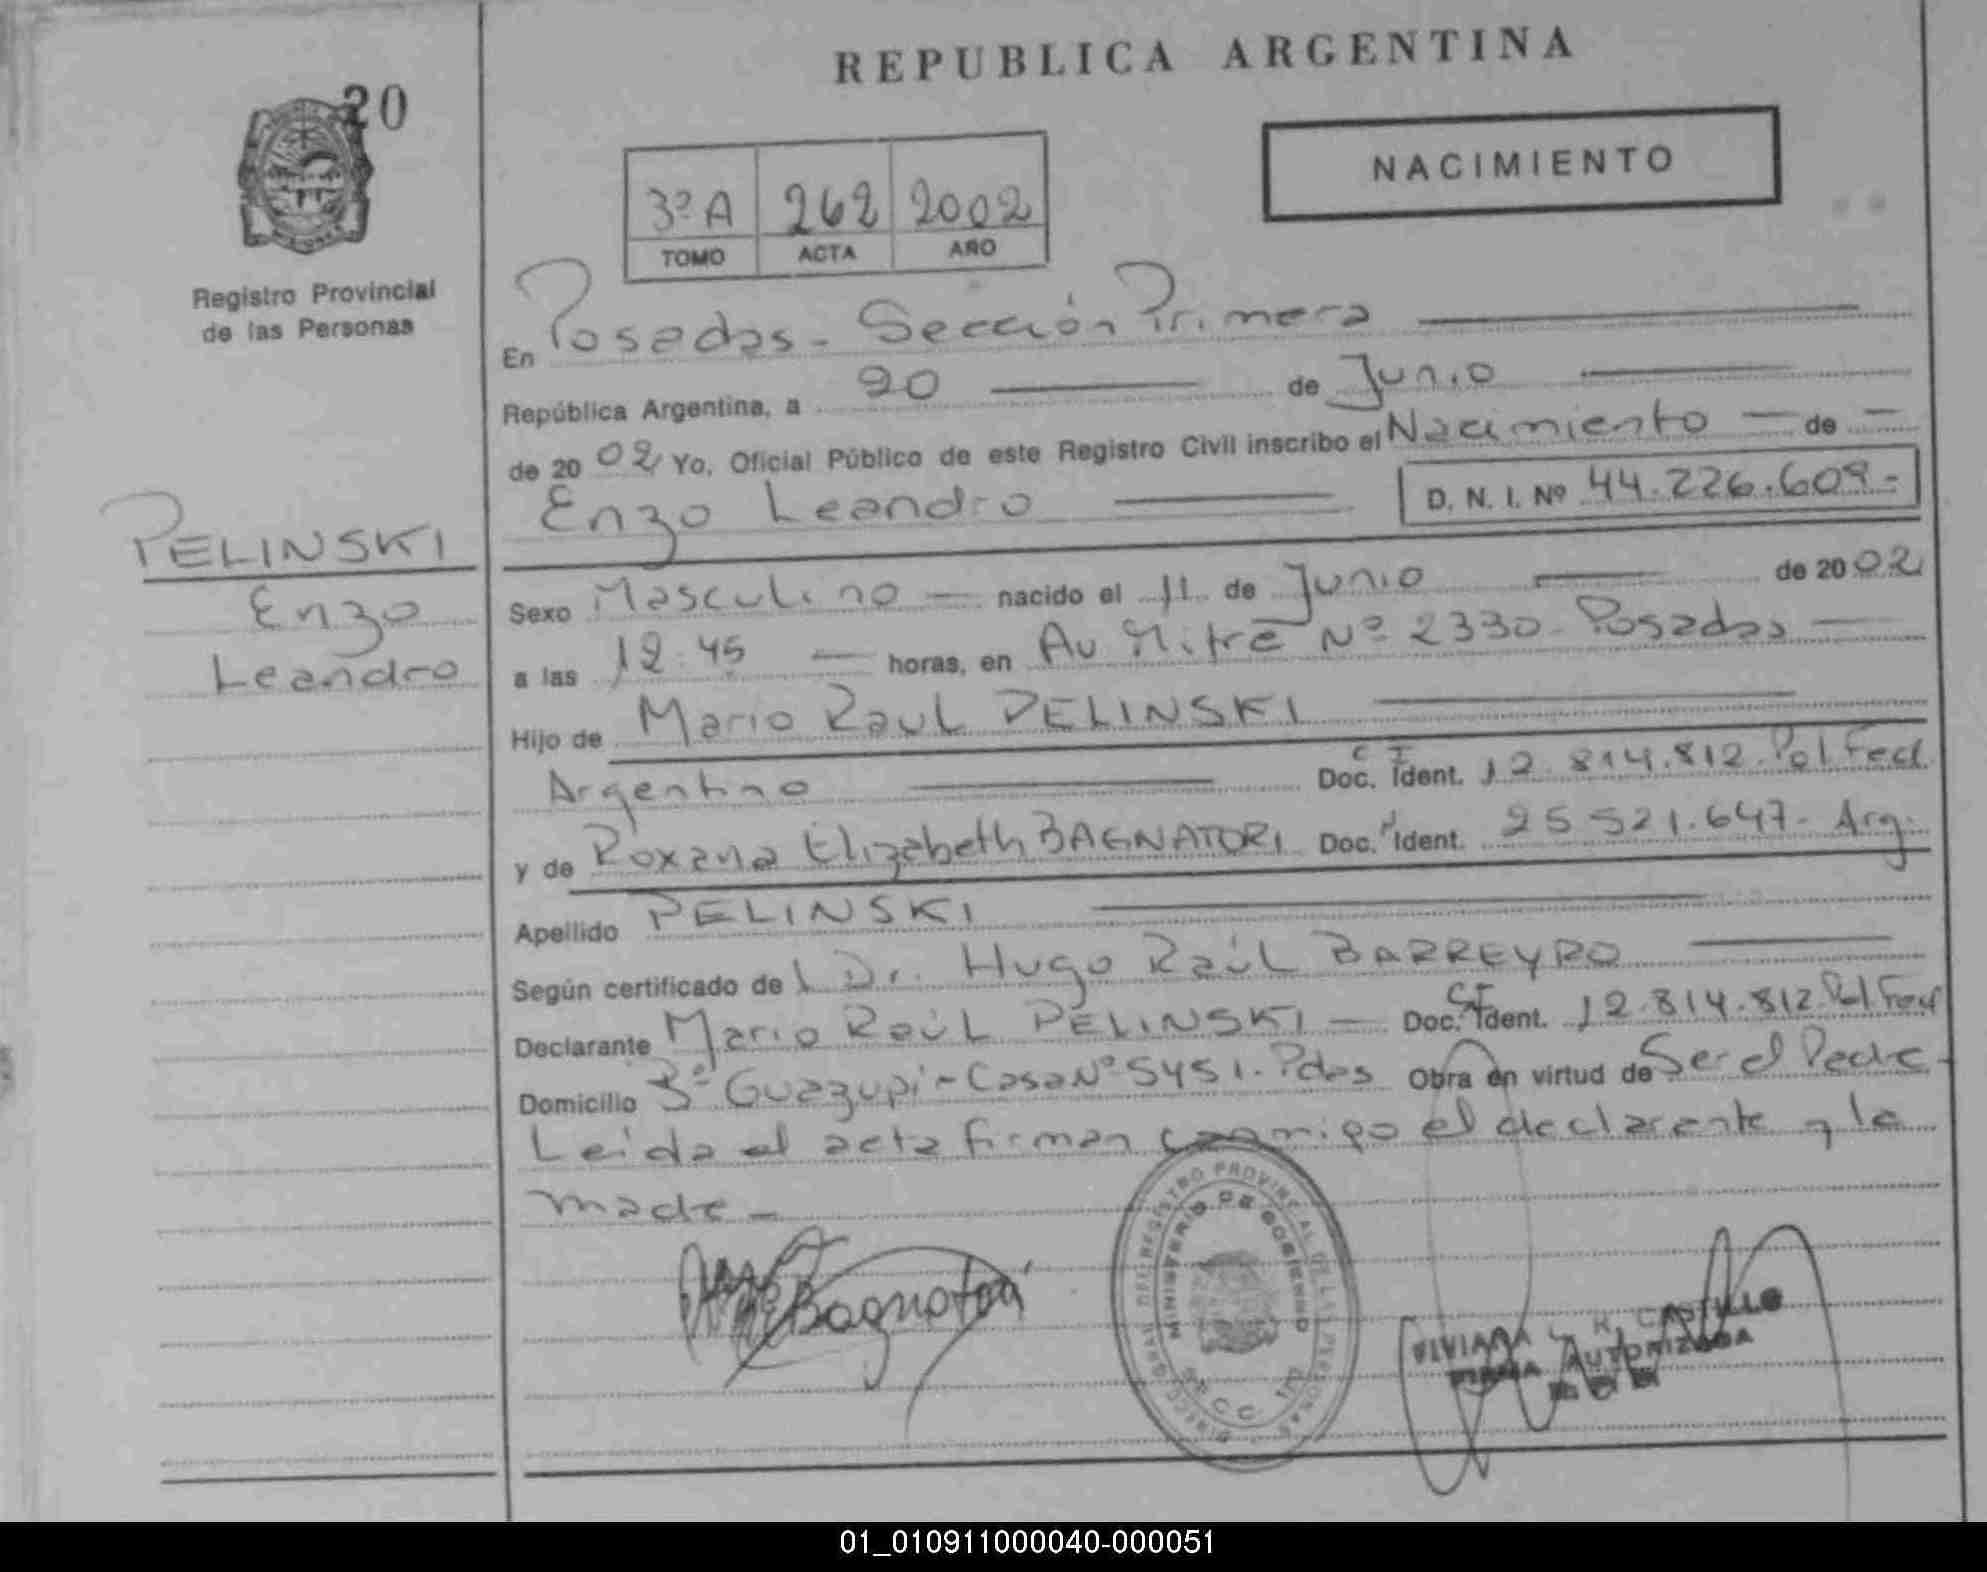 REPUBLICA ARGENTINA
20
NACIMIENTO
3º A 262 2002
TOMO ACTA AÑO
Registro Provincial
de las Personas
En Posadas - Sección Primera
República Argentina, a 20 de Junio
de 20 02 Yo, Oficial Público de este Registro Civil inscribo el Nacimiento de
Enzo Leandro D. N. I. Nº 44.226.609.-
PELINSKI
Enzo
Leandro
Sexo Masculino nacido el 11 de Junio de 20 02
a las 12.45 horas, en Av Mitre Nº 2330 - Posadas
Hijo de Mario Raul PELINSKI
Argentino Doc. C I Ident. 12.814.812. Pol Fed
y de Roxana Elizabeth BAGNATORI Doc. Ident. 25 521.647 - Arg.
Apellido PELINSKI
Según certificado de l Dr. Hugo Raúl BARREYRO
Declarante Mario Raúl PELINSKI - Doc. CI Ident. 12.814.812 Pol Fed
Domicilio Bº Guazupi - Casa Nº 5451. Pdas Obra en virtud de Ser el Padre -
Leída el acta firman conmigo el declarante y la
madre -
Bagnatori
REGISTRO PROVINCIAL DE LAS PERSONAS
MINISTERIO DE GOBIERNO
SECC. 1RA
VIVIANA L. R. CASTILLO
FIRMA AUTORIZADA
01_010911000040-000051